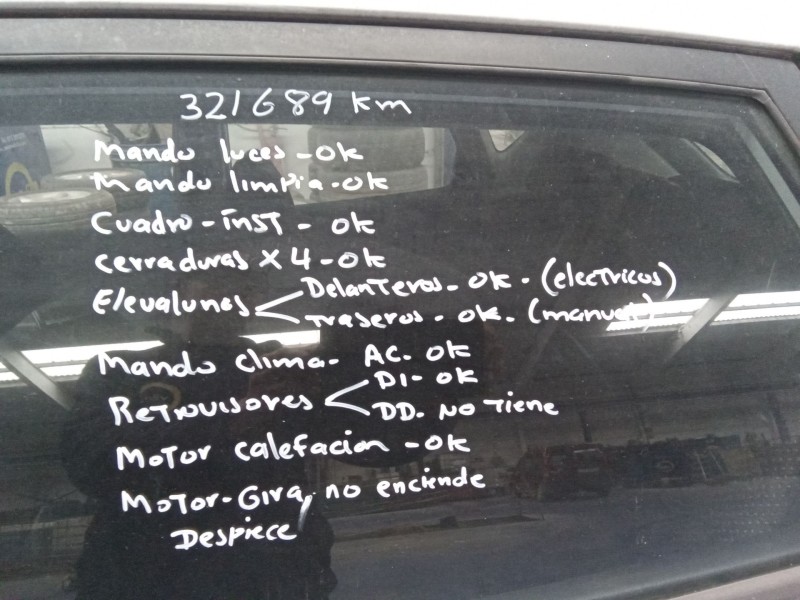 321689 km
Mando luces - OK
Mando limpia - OK
Cuadro - inst - OK
cerraduras x 4 - OK
Elevalunas
Delanteros - OK - (electricos)
Traseros - OK - (manual)
Mando clima - AC. OK
Retrovisores
DI - OK
DD. NO Tiene
Motor calefacion - OK
Motor - Gira, no enciende
Despiece